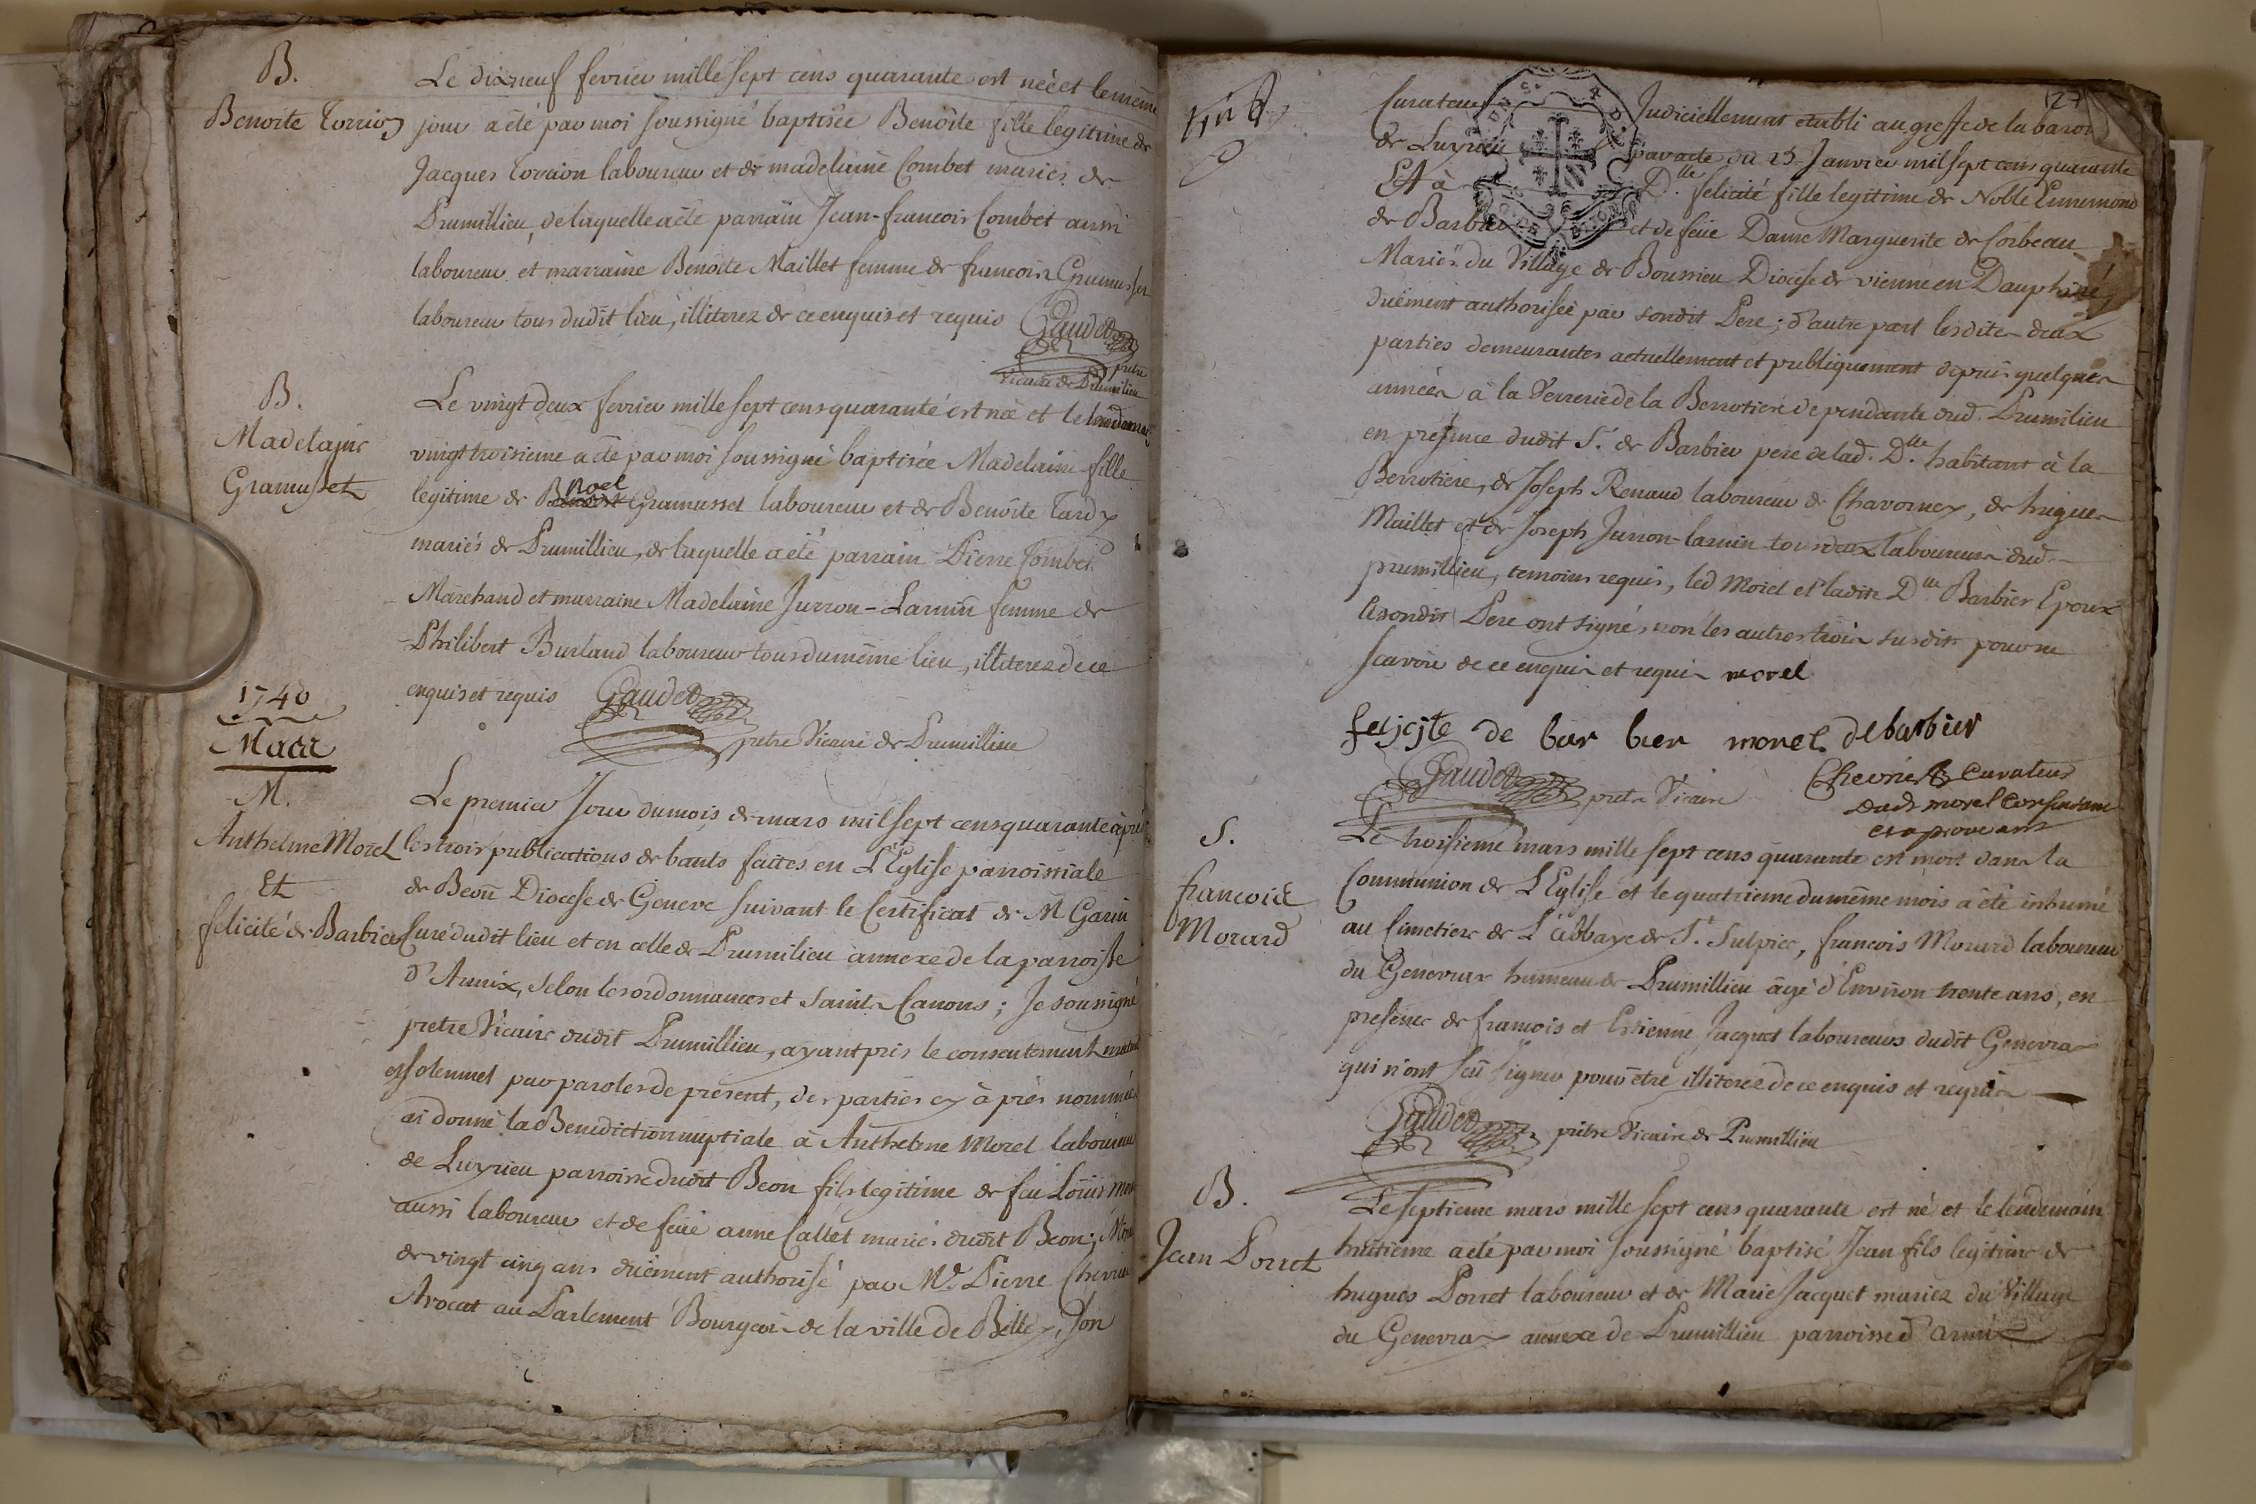 B.
Benoite Torrion
Le dixneuf fevrier mille sept cens quarante est née et le même
jour a été par moi soussigné baptisée Benoite fille legitime de
Jacques Torrion laboureur et de madelaine Combet mariés de
Prumillieu, de laquelle a été parrain Jean-francois Combet aussi
laboureur et marraine Benoite Maillet femme de francois Gramusset
laboureur tous dudit lieu, illiterez de ce enquis et requis Gaudet
pretre
Vicaire de Prumilieu
B.
Madelaine
Gramusset
Le vingt deux fevrier mille sept cens quarante est née et le lendemain
vingt troisieme a été par moi soussigné baptisée Madelaine fille
noel
legitime de Benoit Gramusset laboureur et de Benoite Tardy
mariés de Prumillieu, de laquelle a été parrain Pierre Combet
Marchand et marraine Madelaine Jurron-Larmin femme de
Philibert Burland laboureur tous du même lieu, illiterez de ce
enquis et requis Gaudet
pretre Vicaire de Prumillieu
1740
Mars
M.
Anthelme Morel
Et
felicité de Barbier
Le premier Jour du mois de mars mil sept cens quarante après
les trois publications de bants faites en L'Eglise parroissiale
de Beon Diocese de Geneve suivant le Certificat de M Garin
Curé dudit lieu et en celle de Prumilieu annexe de la parroisse
d'Armix, selon les ordonnances et saints Canons ; Je soussigné
pretre Vicaire dudit Prumillieu, ayant pris le consentement mutuel
et solemnel par paroles de présent, des parties cy après nommées
ai donné la Benediction nuptiale à Anthelme Morel laboureur
de Luyrieu parroisse dudit Beon fils legitime de feu Louis Morel
aussi laboureur et de feüe anne Callet mariés dudit Beon ;
de vingt cinq ans düement authorisé par Me. Pierre Chevrier
Avocat au Parlement Bourgeois de la ville de Belley, son
127
Curateur Judiciellement etabli au greffe de la baronie
de Luyrieu par acte du 25 Janvier mil sept cens quarante
Et à D.lle felicité fille legitime de Noble Ennemond
de Barbier et de feüe Dame Marguerite de Corbeau
Mariés du Village de Boussieu Diocese de vienne en Dauphiné,
düement authorisée par sondit Pere ; d'autre part lesdites deux
parties demeurantes actuellement et publiquement depuis quelques
années à la Verrerie de la Berrotiere dependante dud. Prumilieu
en presence dudit S.r de Barbier pere de lad. D.lle habitant à la
Berrotiere, de Joseph Renaud laboureur de Chavornay, de hugues
Maillet et de Joseph Jurron-larmin tous deux laboureurs dud.
prumillieu, temoins requis, led Morel et ladite D.lle Barbier Epoux
sondit Pere ont signé, non les autres trois susdits pour ne
scavoir de ce enquis et requis morel
felicite de bar bier morel debarbier
Gaudet pretre Vicaire
Chevrier Curateur
dudt morel Consentant
et aprouvant
S.
francois
Morard
Le troisieme mars mille sept cens quarante est mort dans la
Communion de L'Eglise et le quatrieme du même mois a été inhumé
au Cimetiere de L'abbaye de St. Sulpice, francois Morard laboureur
du Genevrax hameau de Prumillieu âgé d'Environ trente ans, en
presence de francois et Estienne Jacquet laboureurs dudit Genevrax
qui n'ont sçû signer pour être illiterez de ce enquis et requis
Gaudet pretre Vicaire de Prumillieu
B.
Jean Porret
Le septieme mars mille sept cens quarante est né et le lendemain
huitieme a été par moi soussigné baptisé Jean fils legitime de
hugues Porret laboureur et de Marie Jacquet mariez du Village
du Genevrax annexe de Prumillieu parroisse d'armix